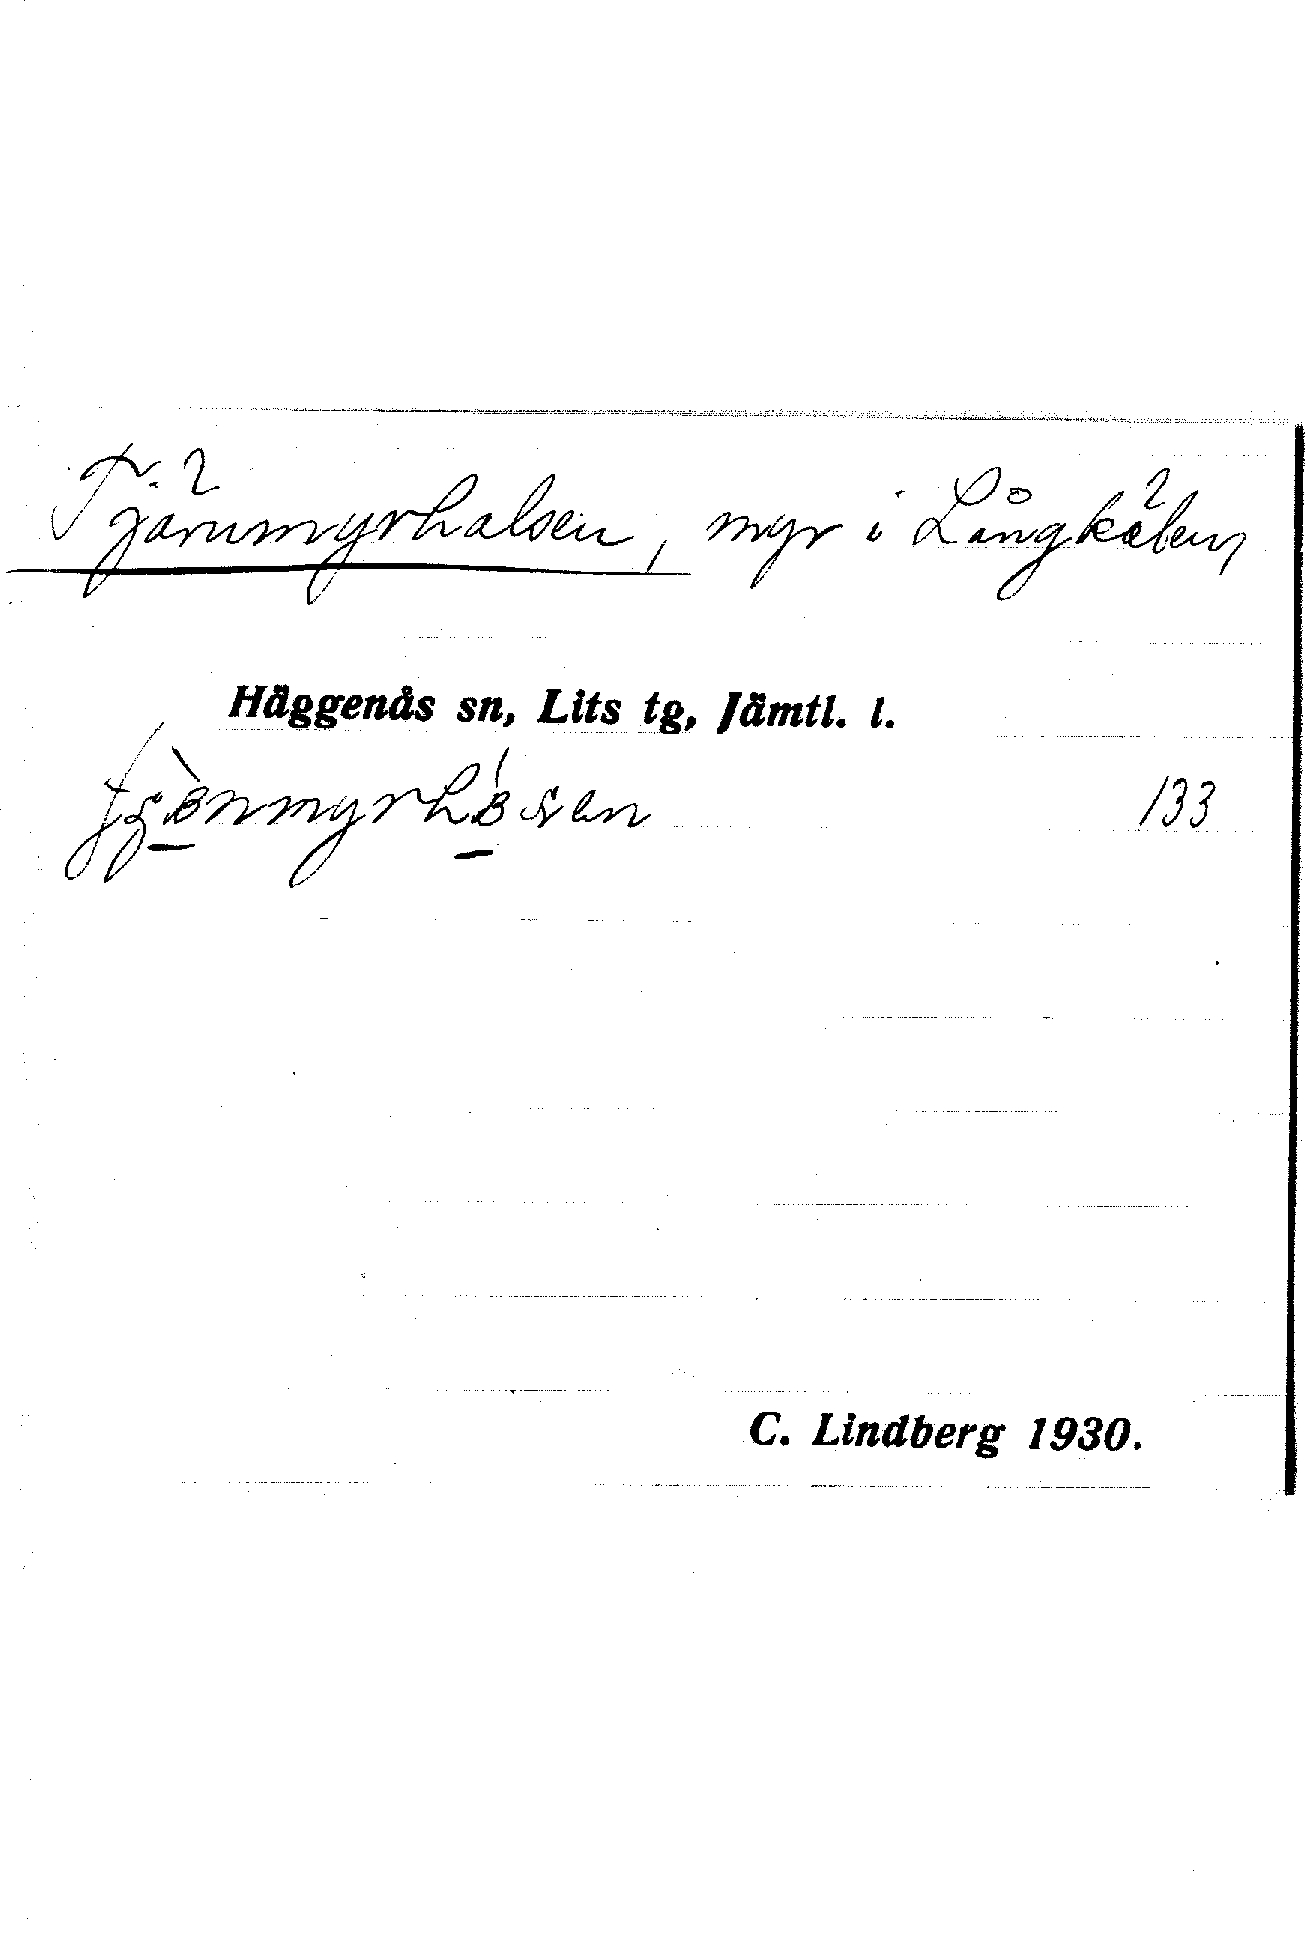 Tjärnmyrhalsen, myr i Långkälen
Häggenås sn, Lits tg, Jämtl. l.
133
C. Lindberg 1930.